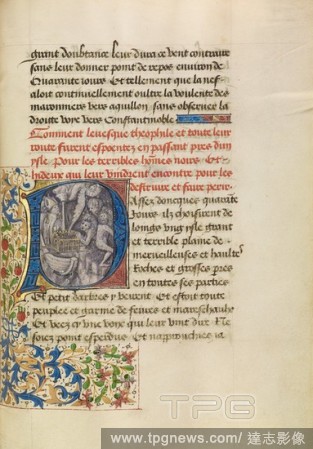 grant doubtance leur dura ce vent contraire
sans leur donner point de repos environ de
Quarante iours Et tellement que la nef
aloit continuelement oultre la voulente des
maronniers vers aquillon sans observer la
droitte voye vers Constantinoble
Comment levesque theophile et toute leur
route furent espentez en passant pres dun
ysle Pour les terribles hommes noirs Et
hideux qui leur vindrent encontre pour les
destruire et faire perir
Assez doncques quarante
iours ilz choisirent de
longz ung ysle grant
et terrible plaine de
merveilleuses et haultes
Roches et grosses pieres
en toutes ses parties
Et petit darbres y avoit Et estoit toute
peuplee et garnie de fevres et mareschaulx
Et veez cy une voix qui leur vint dire Ne
soiez point esperdus Et napprouchies ia
TPG
www.tpgnews.com/ 達志影像